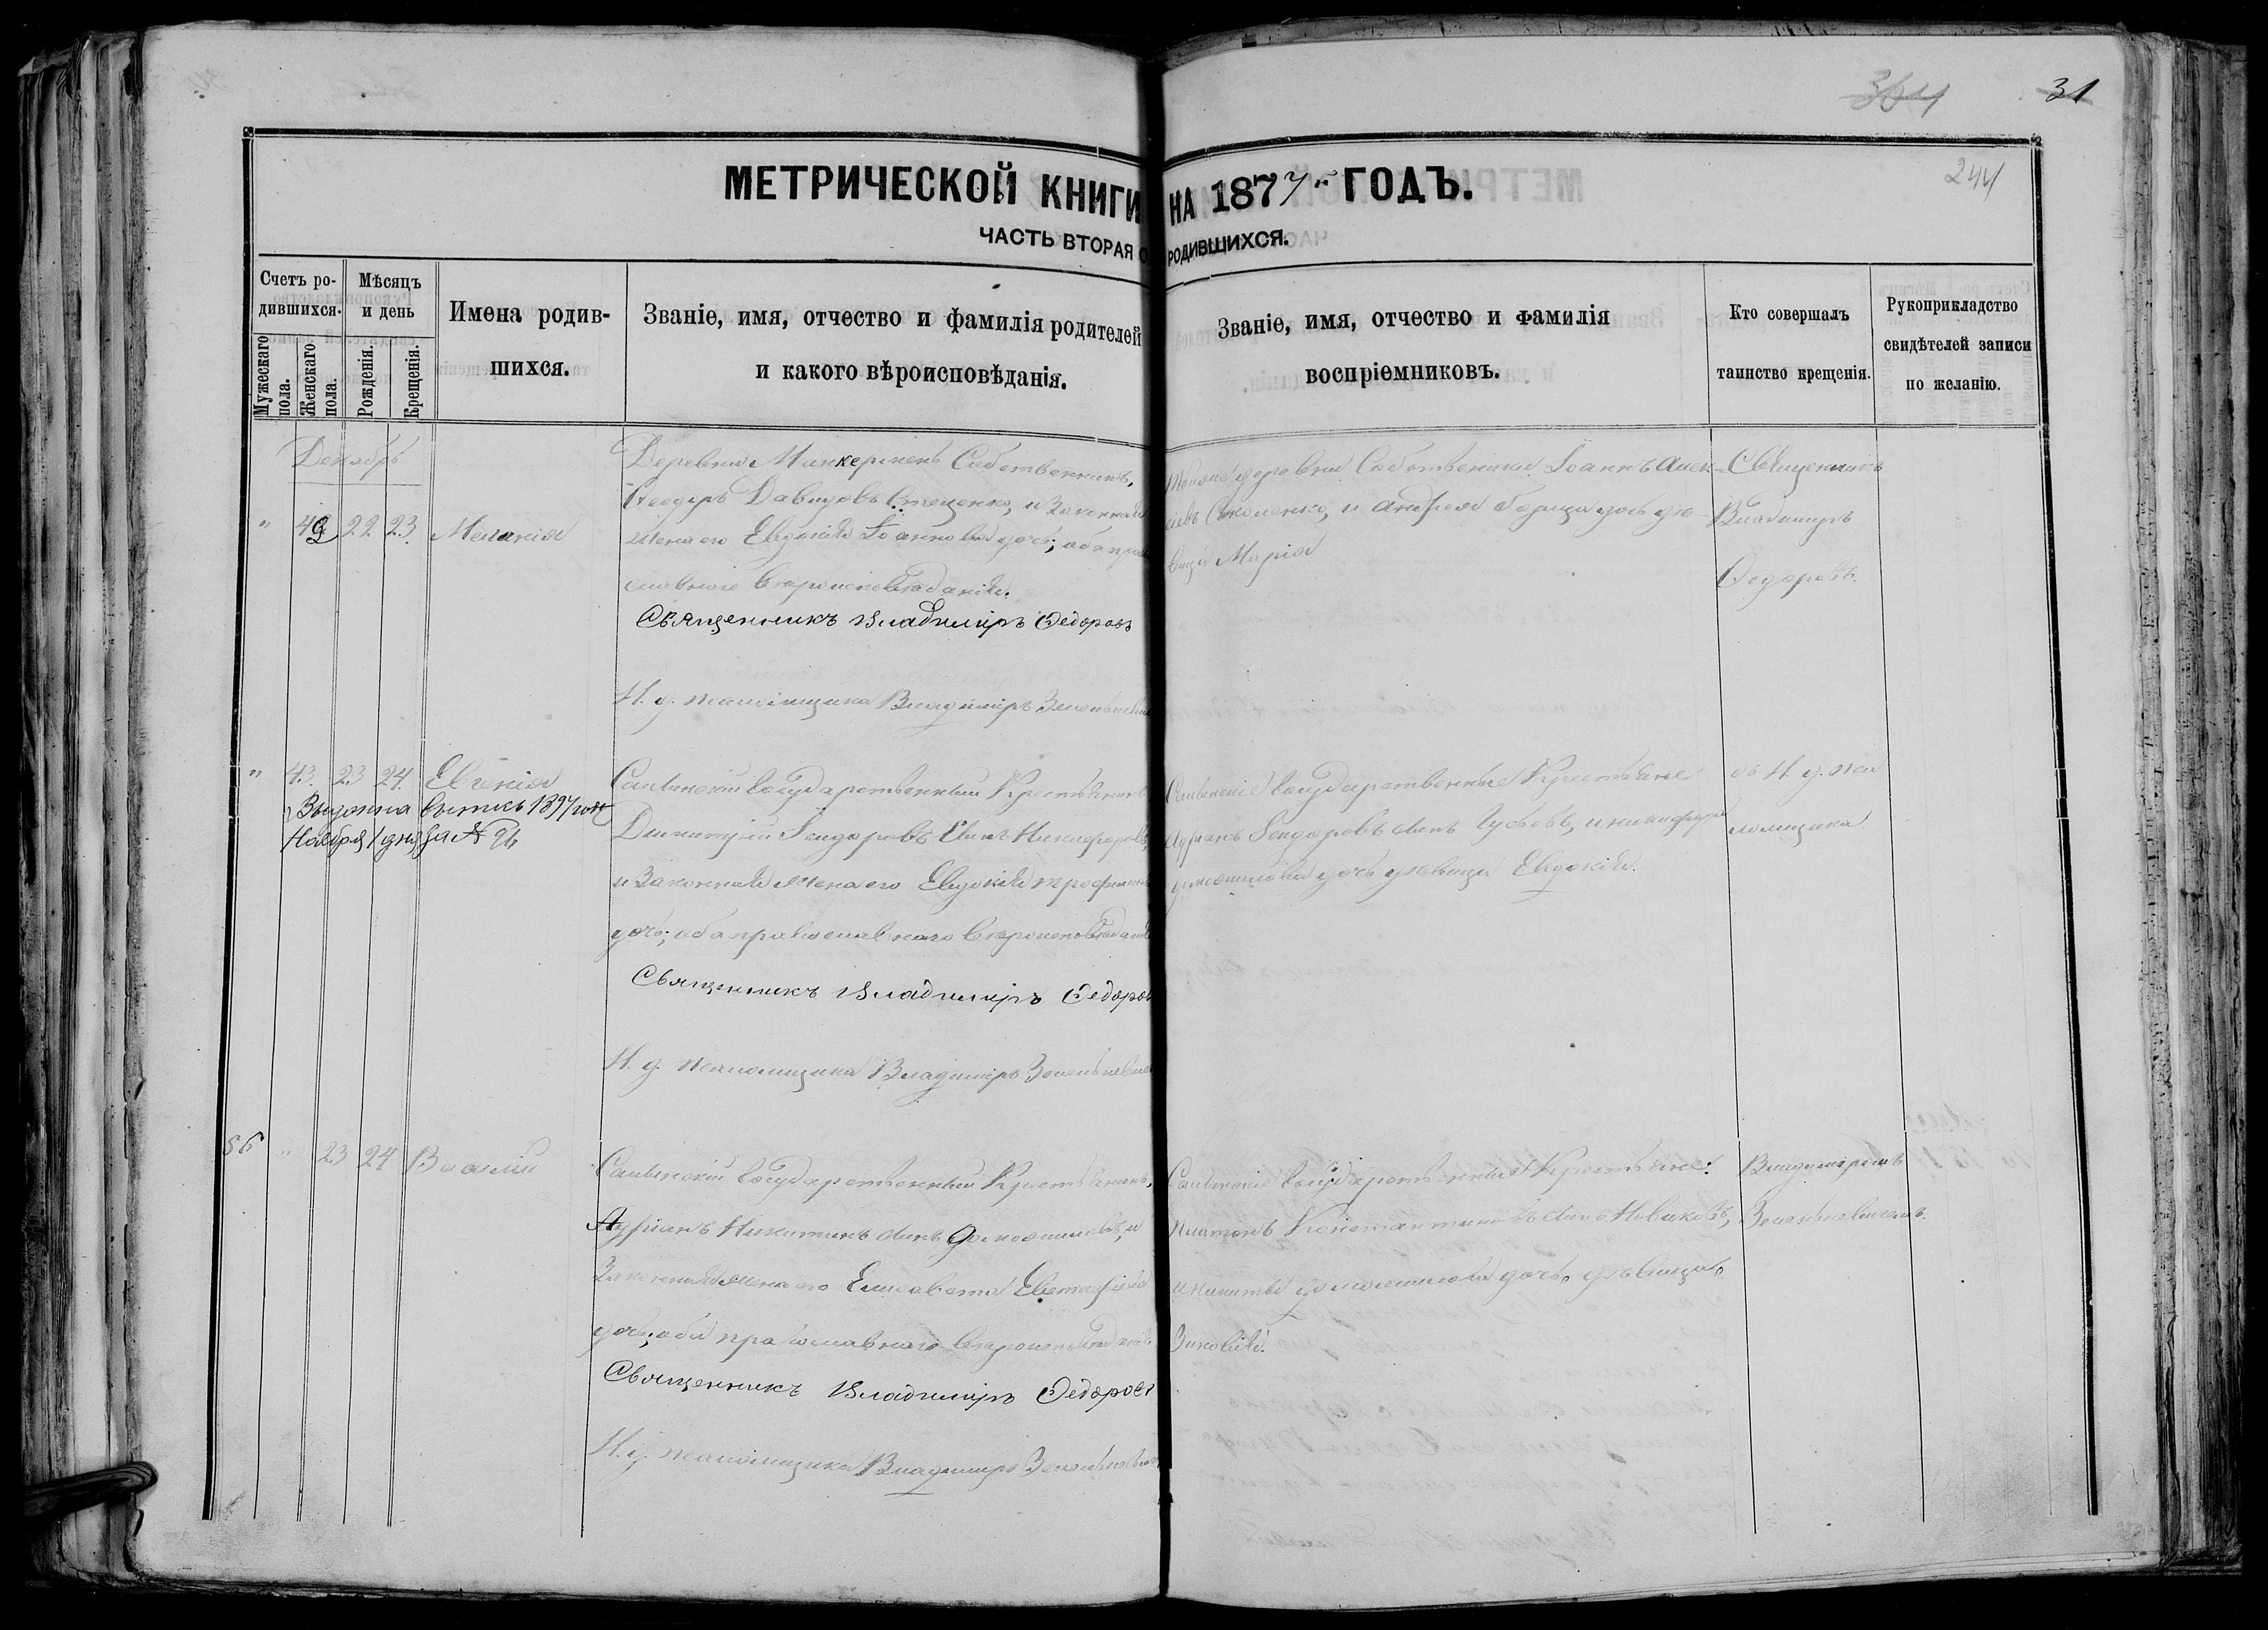 364 31
244
МЕТРИЧЕСКОЙ КНИГИ НА 1877й ГОДЪ.
ЧАСТЬ ВТОРАЯ О РОДИВШИХСЯ.
Счетъ ро-
дившихся.
Мужескаго пола.
Женскаго пола.
Мѣсяцъ
и день
Рожденія.
Крещенія.
Имена родив-
шихся.
Званіе, имя, отчество и фамилія родителей
и какого вѣроисповѣданія.
Званіе, имя, отчество и фамилія
воспріемниковъ.
Кто совершалъ
таинство крещенія.
Рукоприкладство
свидѣтелей записи
по желанію.
Декабрь
" 42 22 23. Меланія
Деревни Собственникъ,
Ѳеодоръ Давидовъ и законная
жена его Евдокія Іоаннова дочь; оба пра
славнаго вѣроисповѣданія.
Священникъ Владиміръ Ѳедоровъ
И. д. псаломщика Владиміръ
деревни Собственники Іоаннъ Алек-
и Андрея дочь дѣ-
вица Марія
Священникъ
Владиміръ
Ѳедоровъ.
" 43. 23 24. Евгенія
Выдана выпись 1897 года
Ноября 1 дня за №
Государственный Крестьянинъ
Димитрій Ѳеодоровъ сынъ Никифоровъ,
и законная жена его Евдокія Трофимов
дочь; оба православнаго вѣроисповѣданія
Священникъ Владиміръ Ѳедоров
И. д. псаломщика Владиміръ
Государственные Крестьяне
Адріанъ Ѳеодоровъ сынъ Гусевъ, и Никифора
дочь дѣвица Евдокія.
съ И. д. пса
ломщика
56 " 23 24 Василій
Государственный Крестьянинъ,
Адріанъ Никитинъ сынъ и
законная жена его Елисавета Евстафіева
дочь; оба православнаго вѣроисповѣданія
Священникъ Владиміръ Ѳедоровъ
И. д. псаломщика Владиміръ
Государственные Крестьяне:
Платонъ Константиновъ сынъ Новиковъ,
и Никиты дочь, дѣвица,
Зиновія.
Владиміромъ